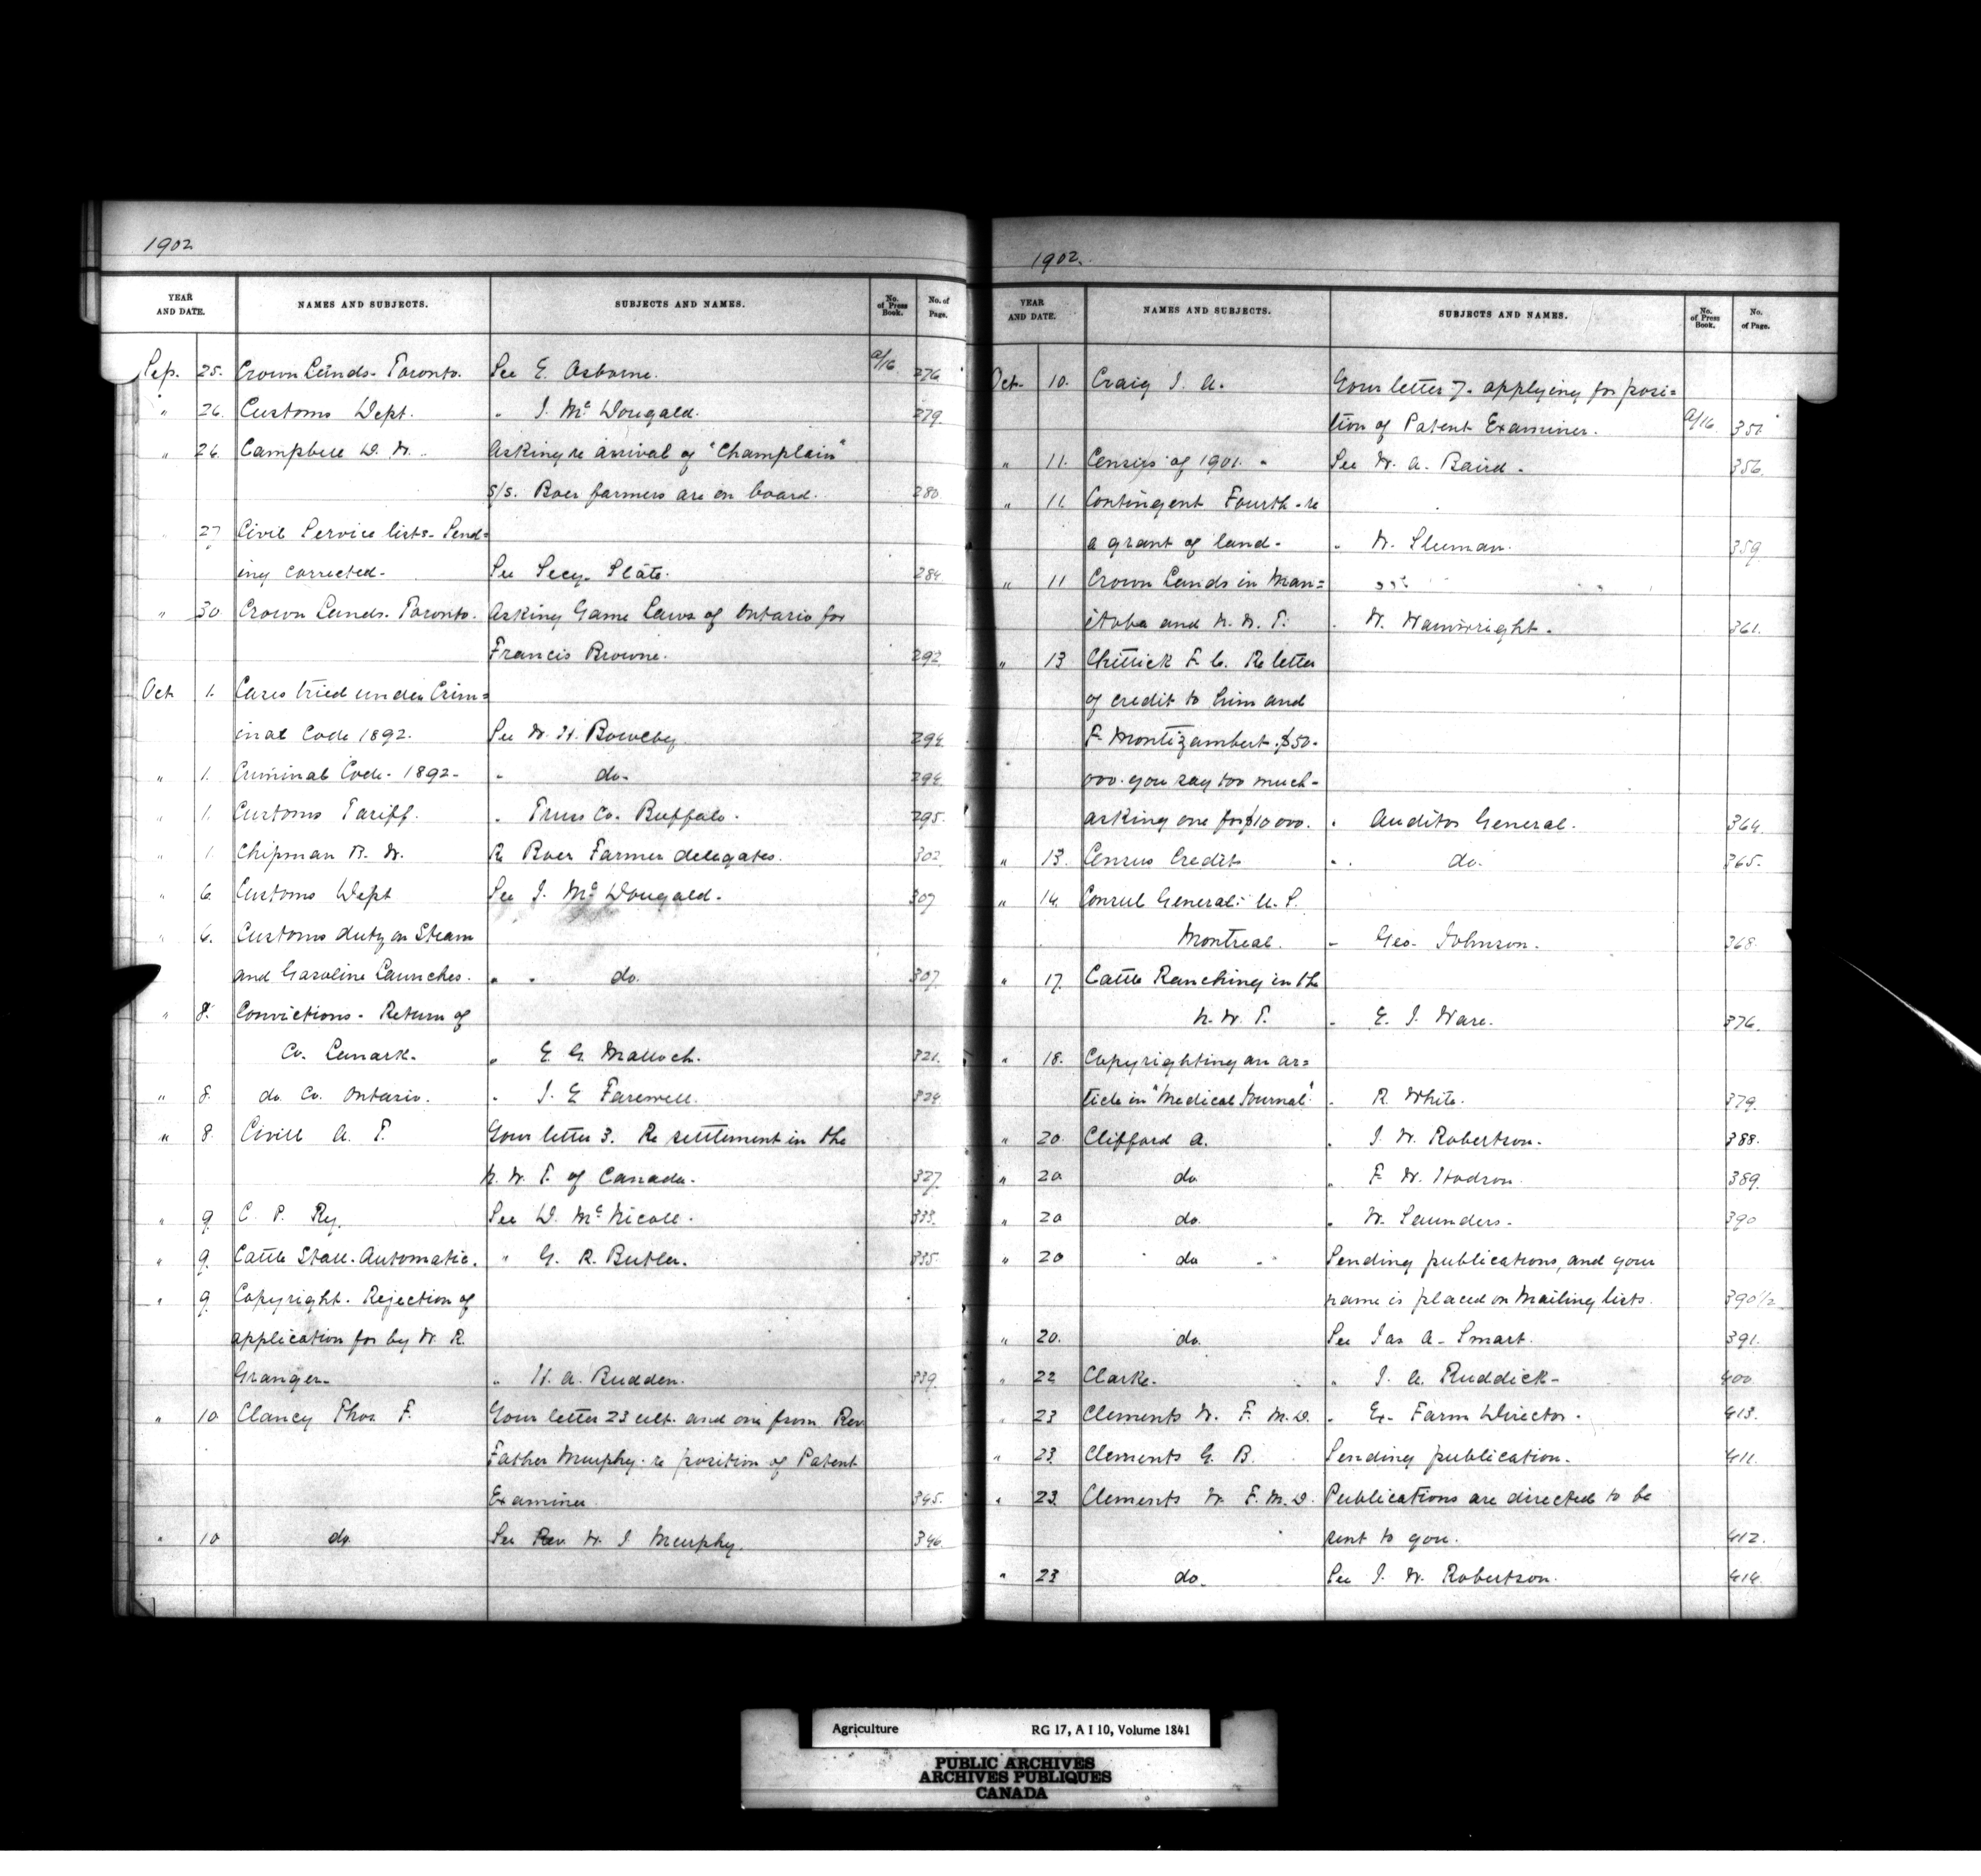 1902
YEAR AND DATE. NAMES AND SUBJECTS. SUBJECTS AND NAMES. No. of Press Book. No. of Page.
Sep. 25. Crown Lands. Toronto. See E. Osborne. a/16 276
" 26. Customs Dept. " J. McDougald. 279
" 26 Campbell D. W. Asking re arrival of "Champlain"
s/s. Boer farmers are on board. 280
27 Civil Service lists. Send=
ing corrected. See Secy. State. 284
" 30 Crown Lands. Toronto. Asking Game Laws of Ontario for
Francis Browne. 292
Oct 1. Cases tried under Crim=
inal Code 1892. See W. H. Bowlby 294
" 1. Criminal Code. 1892. " do. 294
" 1. Customs Tariff. " Truss Co. Buffalo. 295.
" 1. Chipman B. W. Re Boer Farmer delegates. 302
" 6. Customs Dept See J. McDougald. 307
" 6. Customs duty on Steam
and Gasoline Launches. " " do. 307.
" 8. Convictions. Return of
Co. Lanark. " E. G. Malloch. 321.
" 8. do. Co. Ontario. " J. E. Farewell. 324
" 8. Civill A. T. Your letter 3. Re settlement in the
N. W. T. of Canada. 327
" 9 C. P. Ry. See D. McNicoll. 333.
" 9. Cattle Stall. Automatic. " G. R. Butler. 335.
" 9 Copyright. Rejection of
application for by W. R.
Granger. " H. A. Budden. 339.
" 10 Clancy Thos. F. Your letter 23 ult. and one from Rev
Father Murphy. re position of Patent
Examiner 345.
" 10 do. See Rev. W. J Murphy. 346.
1902.
YEAR AND DATE. NAMES AND SUBJECTS. SUBJECTS AND NAMES. No. of Press Book. No. of Page.
Oct. 10. Craig J. A. Your letter 7. applying for posi=
tion of Patent Examiner. a/16 351
" 11. Census of 1901. See W. A. Baird. 356.
" 11. Contingent Fourth. re
a grant of land. " W. Sluman. 359
" 11 Crown Lands in Man=
itoba and N. W. T. " W. Wainwright. 361.
" 13 Chittick F. C. Re letter
of credit to him and
F. Montizambert. $50.
000. you say too much.
asking one for $10 000. " Auditor General. 364.
" 13. Census Credits " do. 365.
" 14. Consul General: U. S.
Montreal. " Geo. Johnson. 368
" 17. Cattle Ranching in the
N. W. T. " E. J. Ware. 376.
" 18. Copyrighting an ar=
ticle in "Medical Journal" " R. White. 379.
" 20. Clifford A. " J. W. Robertson. 388.
" 20 do " F. W. Hodson. 389.
" 20 do. " W. Saunders. 390
" 20 do Sending publications, and your
name is placed on Mailing lists. 390 1/2
" 20. do. See Jas A. Smart. 391.
" 22 Clarke. " J. A. Ruddick. 400.
" 23 Clements W. F. M.D. " Ex. Farm Director. 413.
" 23 Clements G. B. Sending publication. 411.
" 23. Clements W. F. M.D. Publications are directed to be
sent to you. 412.
" 23 do. See J. W. Robertson. 414.
Agriculture RG 17, A I 10, Volume 1841
PUBLIC ARCHIVES
ARCHIVES PUBLIQUES
CANADA